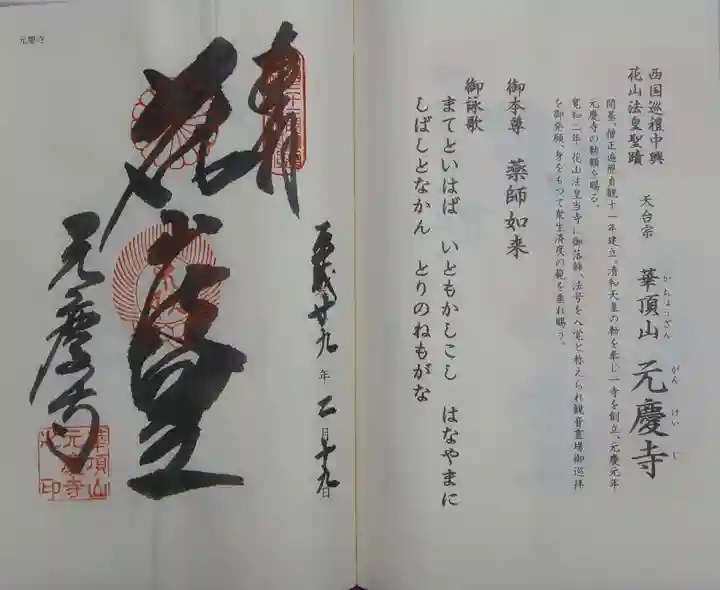 西国巡禮中興
花山法皇聖蹟
天台宗 華頂山 元慶寺
かちょうざん
がんけいじ
開基、僧正遍照貞観十一年建立。清和天皇の勅を奉じ一寺を創立、元慶元年
元慶寺の勅額を賜る。
寛和二年、花山法皇当寺に御落飾、法号を入覚と称えられ観音霊場御巡拝
を御発願、身をもつて衆生済度の範を垂れ賜う。
御本尊 薬師如来
御詠歌
まてといはば いともかしこし はなやまに
しばしとなかん とりのねもがな
元慶寺
奉拝
平成廿九年二月十九日
花山法皇
元慶寺
華頂山
元慶寺
之印